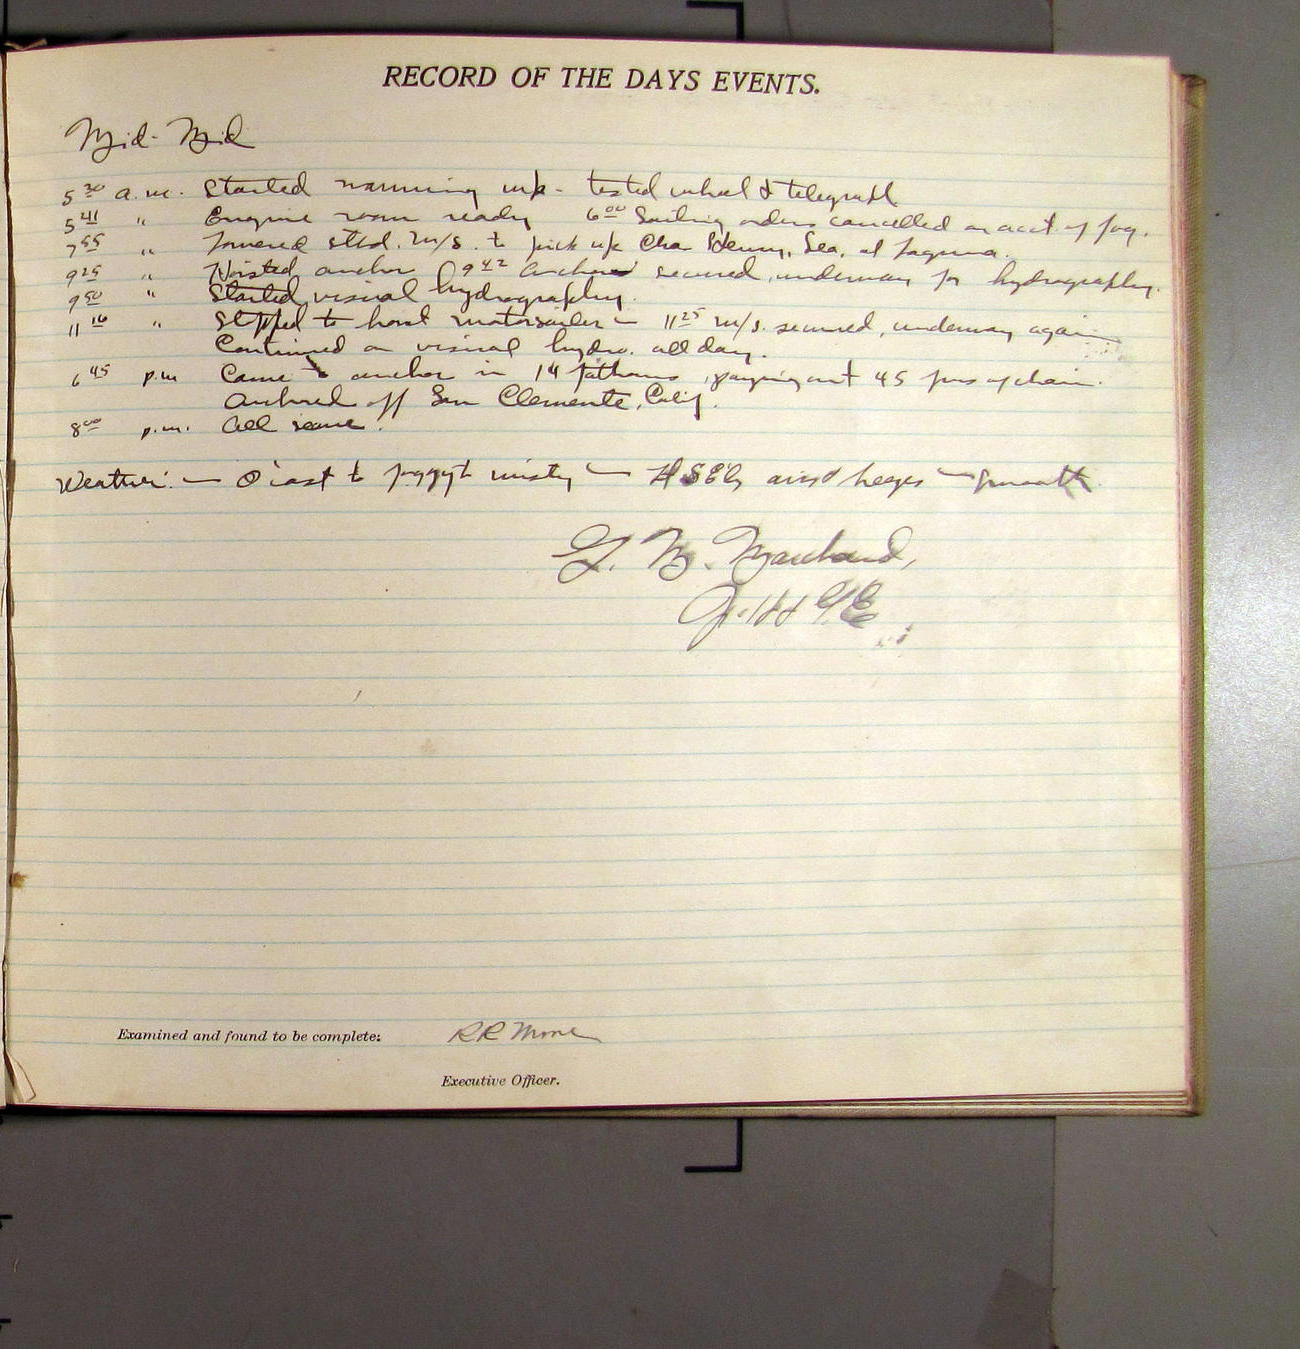 RECORD OF THE DAYS EVENTS.
Mid - Mid
5 30 a.m. Started warming up - tested wheel & telegraph
5 41 " Engine room ready 6 00 Sailing orders cancelled on acct. of fog.
7 55 " Lowered stbd. m/s. to pick up Chas Henny, Sea. at Laguna.
9 25 " Hoisted anchor 9 42 anchor secured, underway for hydrography.
9 50 " Started visual hydrography.
11 16 " Stopped to hoist motorsailer - 11 25 m/s. secured, underway again
Continued on visual hydro. all day.
6 45 p.m Came to anchor in 14 fathoms, paying out 45 fms of chain.
Anchored off San Clemente, Calif.
8 00 p.m. All secure.
Weather: - O'cast to foggy & misty - airs & - Smooth
Examined and found to be complete: R R Moore
Executive Officer.